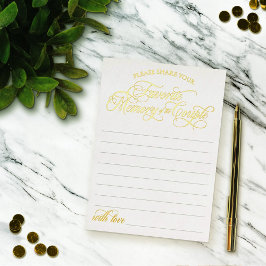 PLEASE SHARE YOUR
Favorite
Memory of the Couple
with love